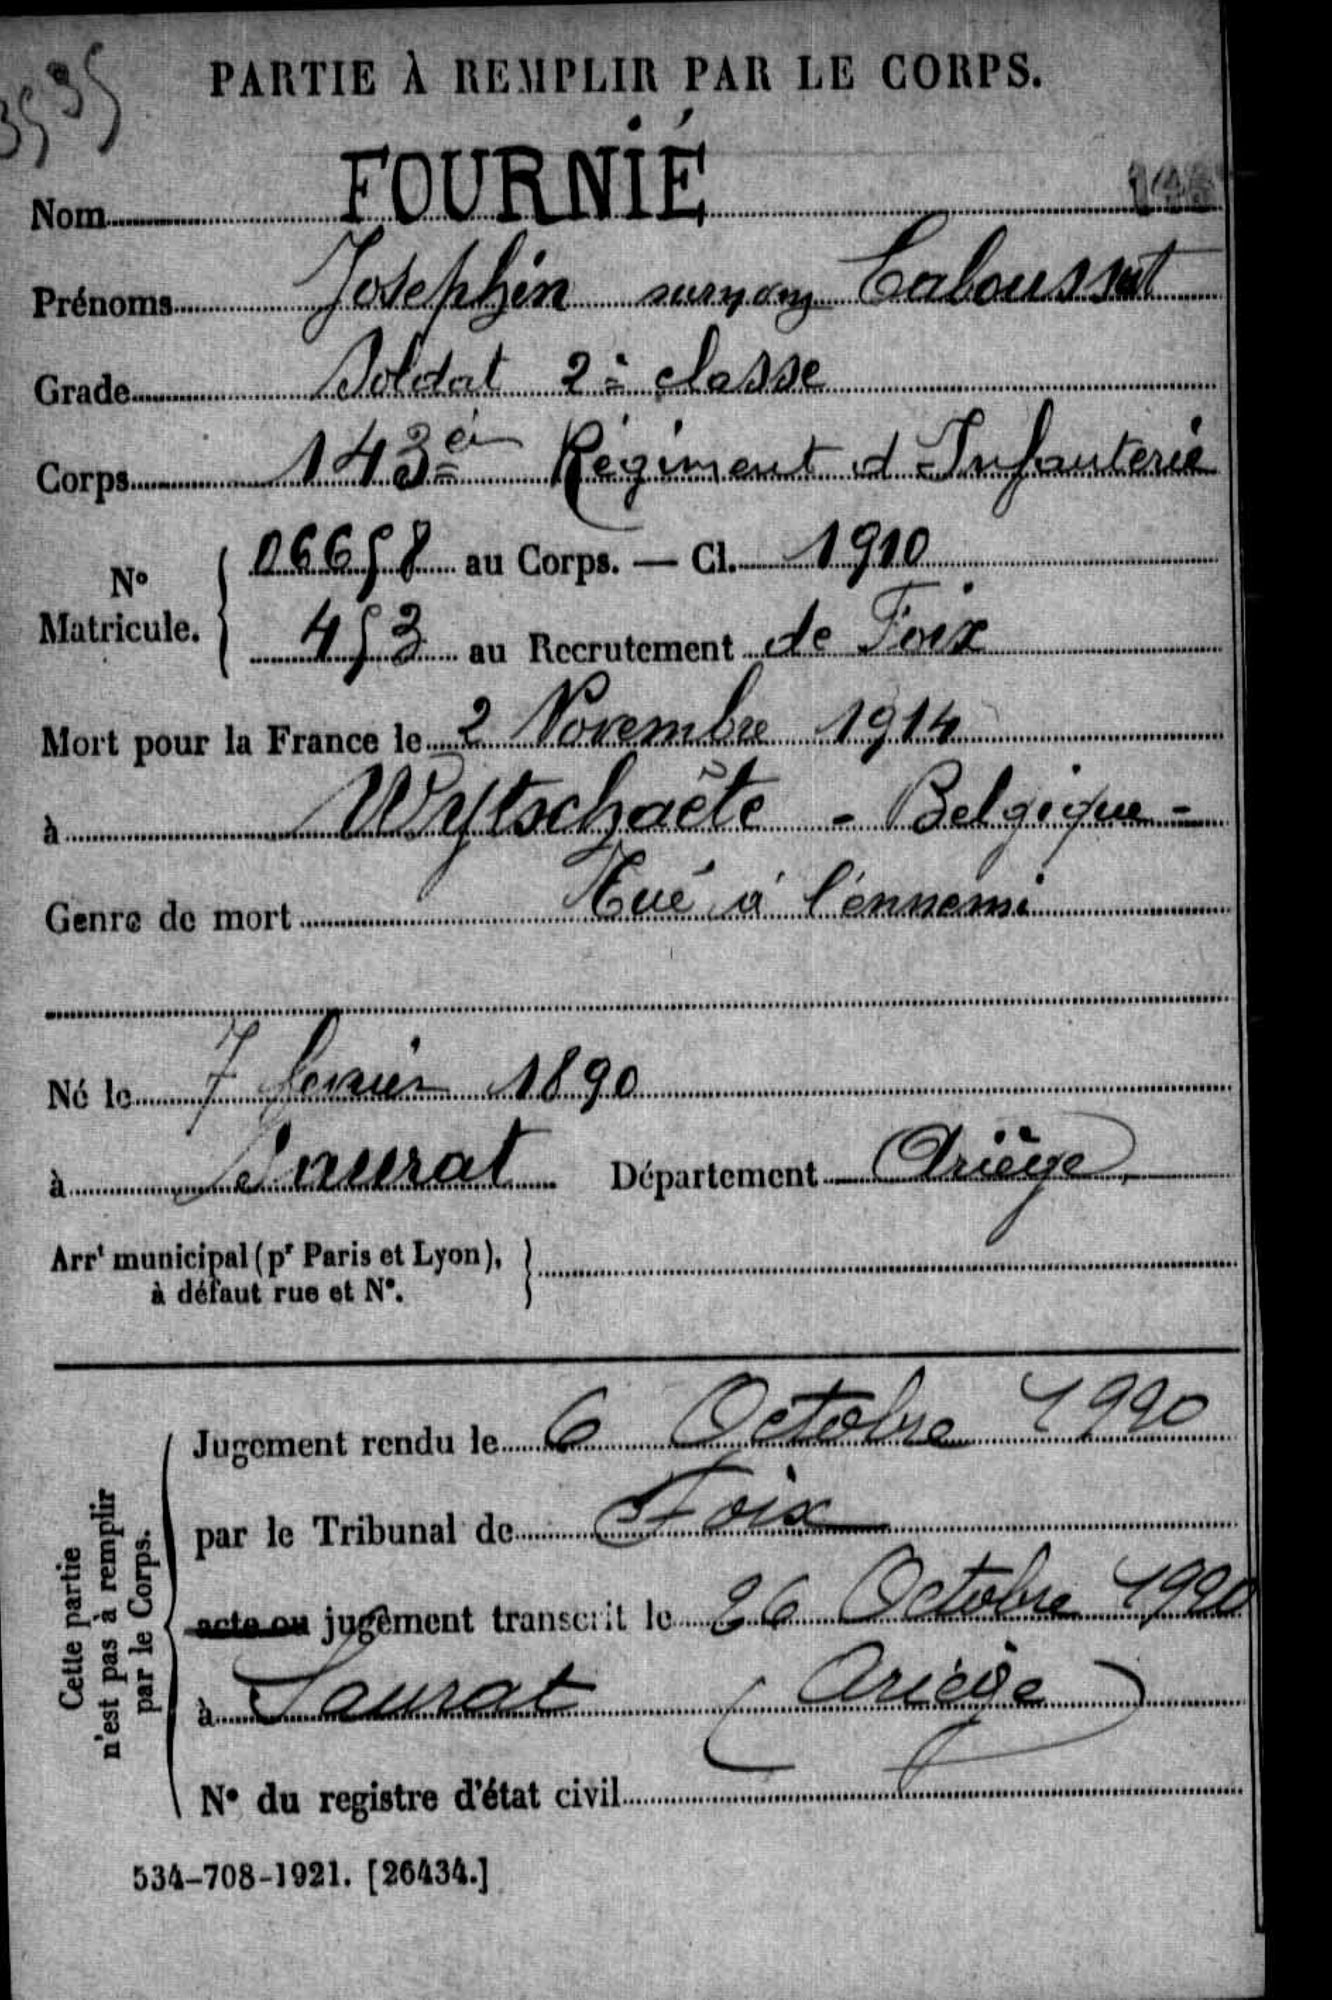 3595
PARTIE À REMPLIR PAR LE CORPS.
Nom FOURNIÉ
Prénoms Josephin surnom Caboussat
Grade Soldat 2e classe
Corps 143e Régiment d'Infanterie
No Matricule. { 06658 au Corps. — Cl. 1910
453 au Recrutement de Foix
Mort pour la France le 2 Novembre 1914
à Wytschaëte - Belgique -
Genre de mort Tué à l'ennemi
Né le 7 février 1890
à Saurat Département Ariège
Arrt municipal (pr Paris et Lyon), }
à défaut rue et No.
Cette partie
n'est pas à remplir
par le Corps.
Jugement rendu le 6 Octobre 1920
par le Tribunal de Foix
acte ou jugement transcrit le 26 Octobre 1920
à Saurat (Ariège)
No du registre d'état civil
534-708-1921. [26434.]